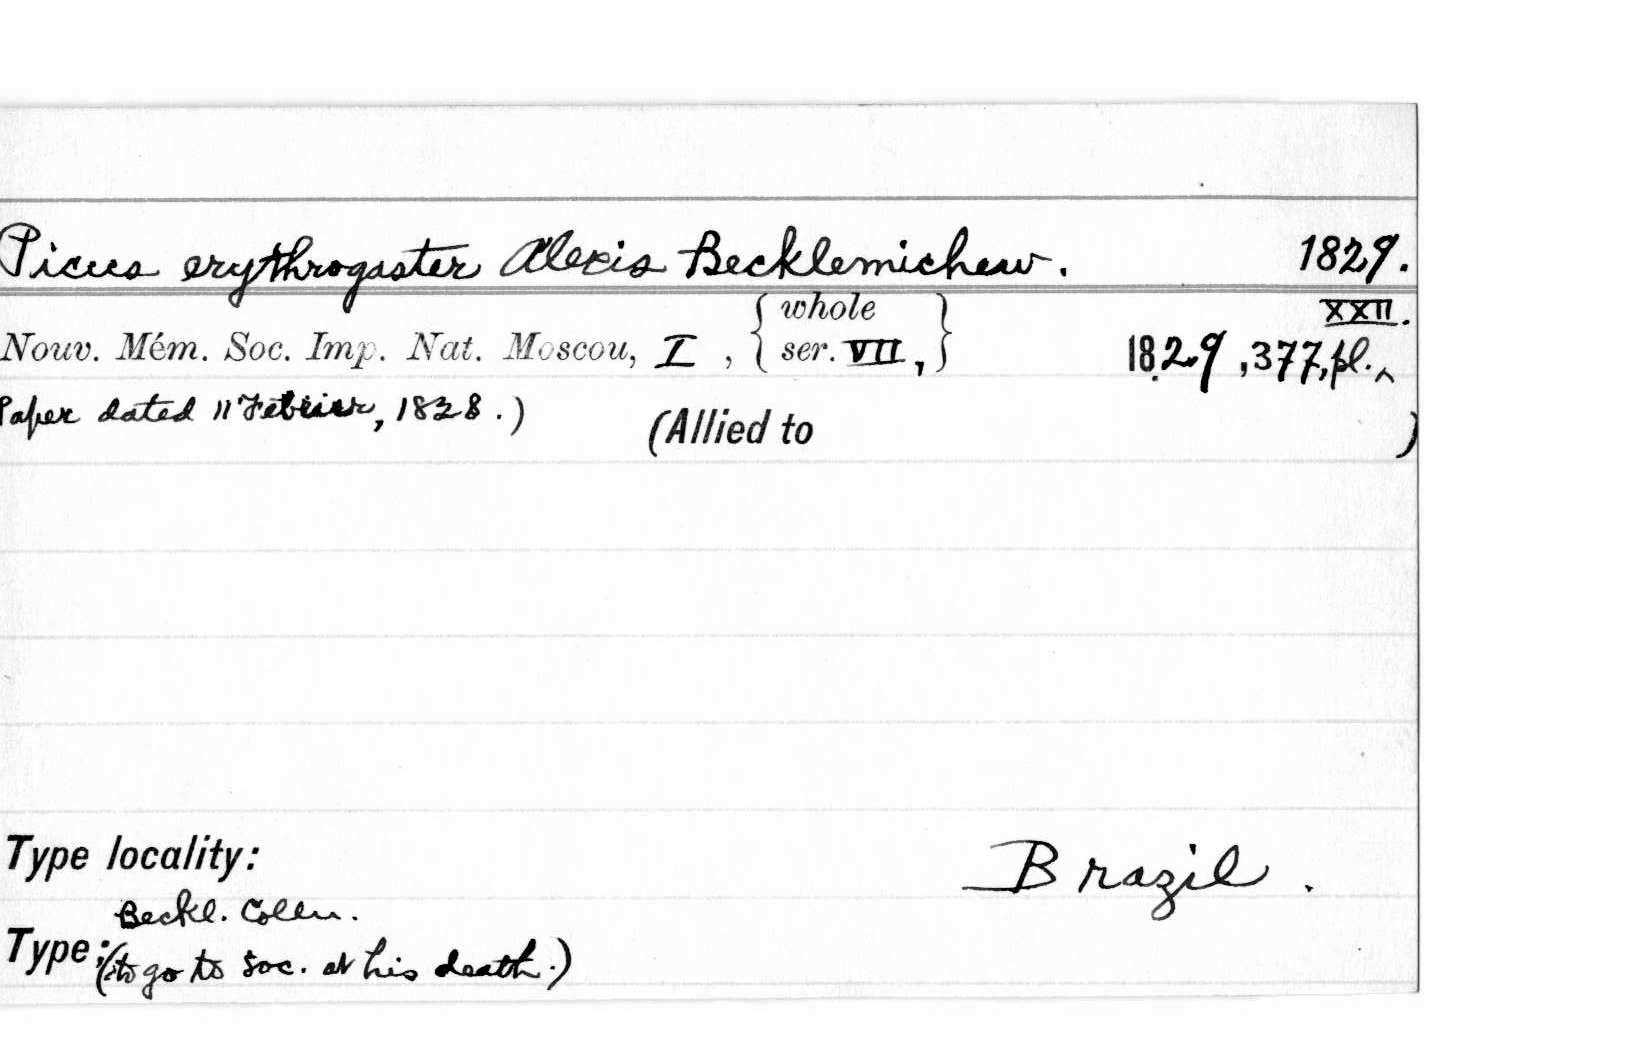 Picus erythrogaster Alexis Becklemichew. 1829.
Nouv. Mém. Soc. Imp. Nat. Moscou, I, { whole ser. VII, } 1829, 377, pl. ‸ XXII.
Paper dated 11 Fevrier, 1828.)
(Allied to )
Type locality: Brazil.
Beckl. Colln.
Type: (to go to Soc. at his death.)